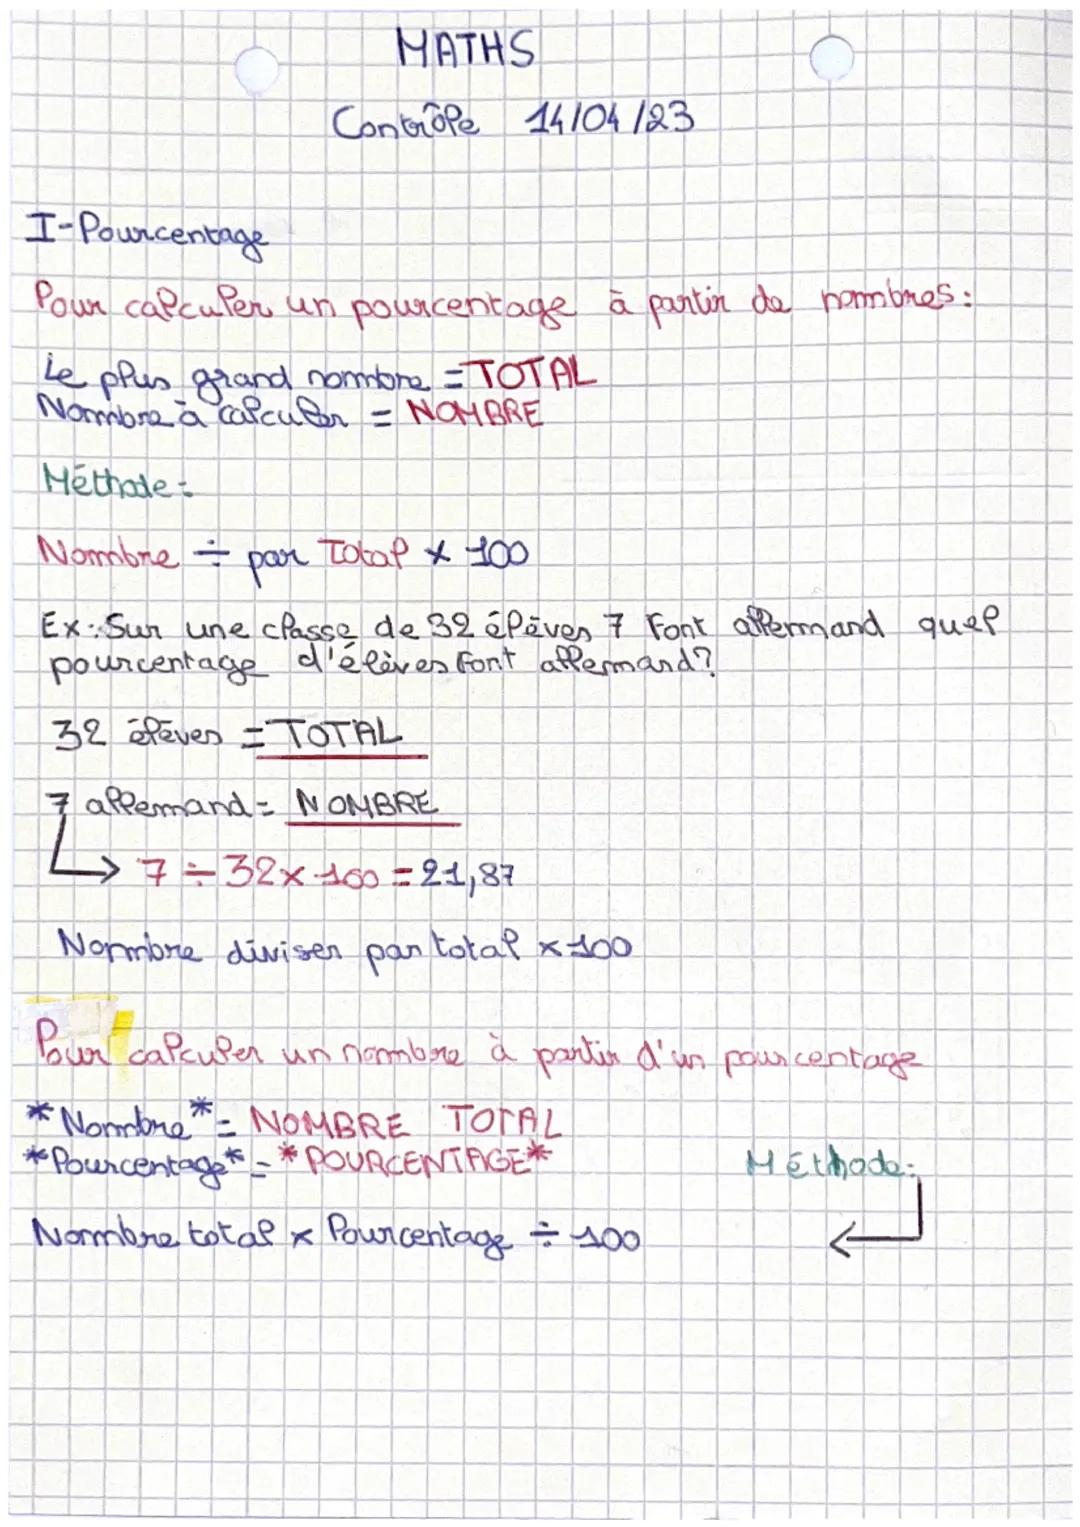 MATHS
Contrôle 14/04/23
I-Pourcentage
Pour calculer un pourcentage à partir de nombres:
Le plus grand nombre = TOTAL
Nombre à calculer = NOMBRE
Méthode:
Nombre ÷ par Total × 100
Ex: Sur une classe de 32 élèves 7 Font allemand quel
pourcentage d'élèves Font allemand?
32 élèves = TOTAL
7 allemand = NOMBRE
7 ÷ 32 × 100 = 21,87
Nombre diviser par total × 100
Pour calculer un nombre à partir d'un pourcentage
*Nombre* = NOMBRE TOTAL
*Pourcentage* = *POURCENTAGE*
Méthode:
Nombre total × Pourcentage ÷ 100